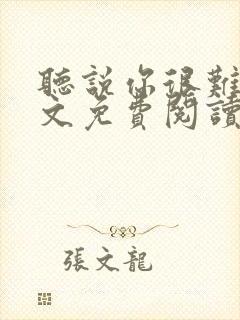 聽說你很難
文免費閱讀
張文龍